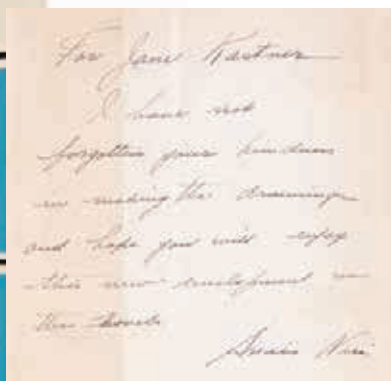 For Jane Kastner
I have not
forgotten your kindness
in making the drawings
and hope you will enjoy
this new development in
the novels
Anaïs Nin